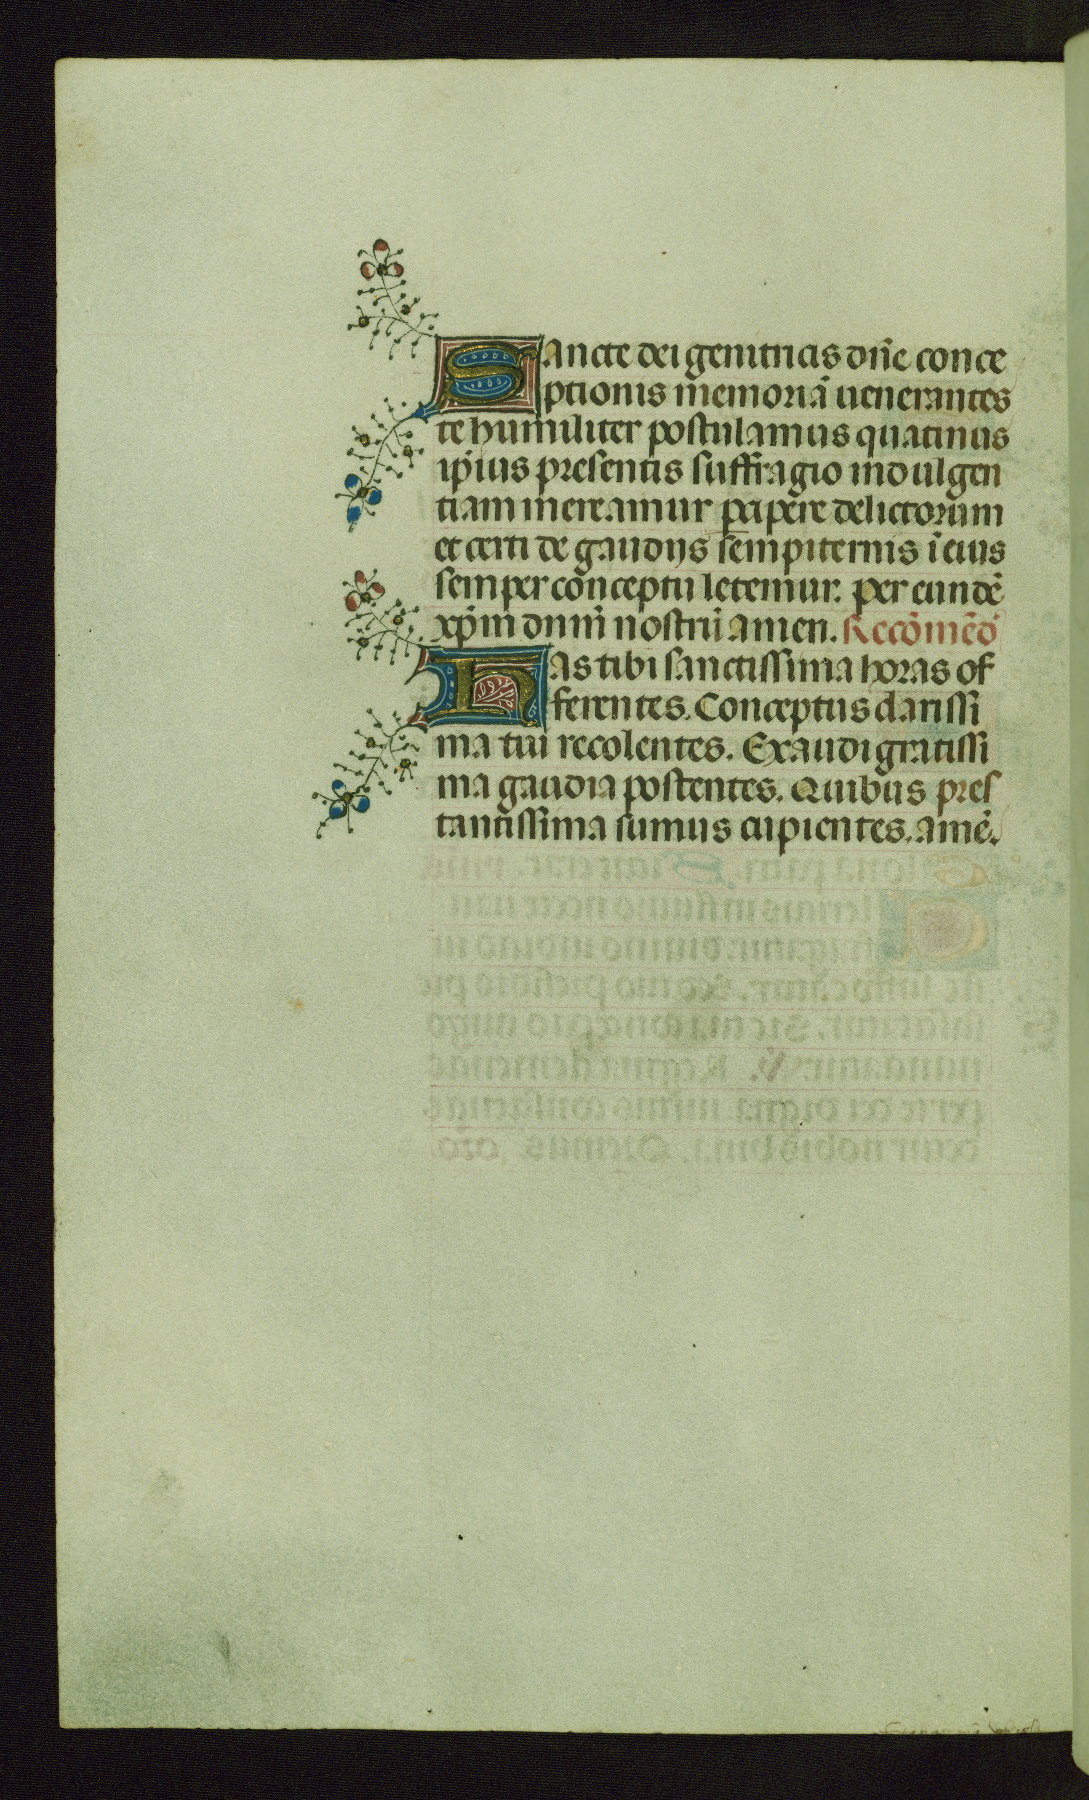 Sancte dei genitricis dn̄e conce
ptionis memoriā uenerantes
te humiliter postulamus quatinus
ip̄ius presentis suffragio indulgen
tiam mereamur p̲cipe̅re delictorum
et certi de gaudijs sempiternis ī eius
semper conceptu letemur. per eundē
xp̄m dnm̄ nostrū amen. Recōmēd̄
Has tibi sanctissima horas of
ferentes. Conceptus clarissi
ma tui recolentes. Exaudi gratissi
ma gaudia postentes. Quibus pres
tantissima sumus cupientes. amē.